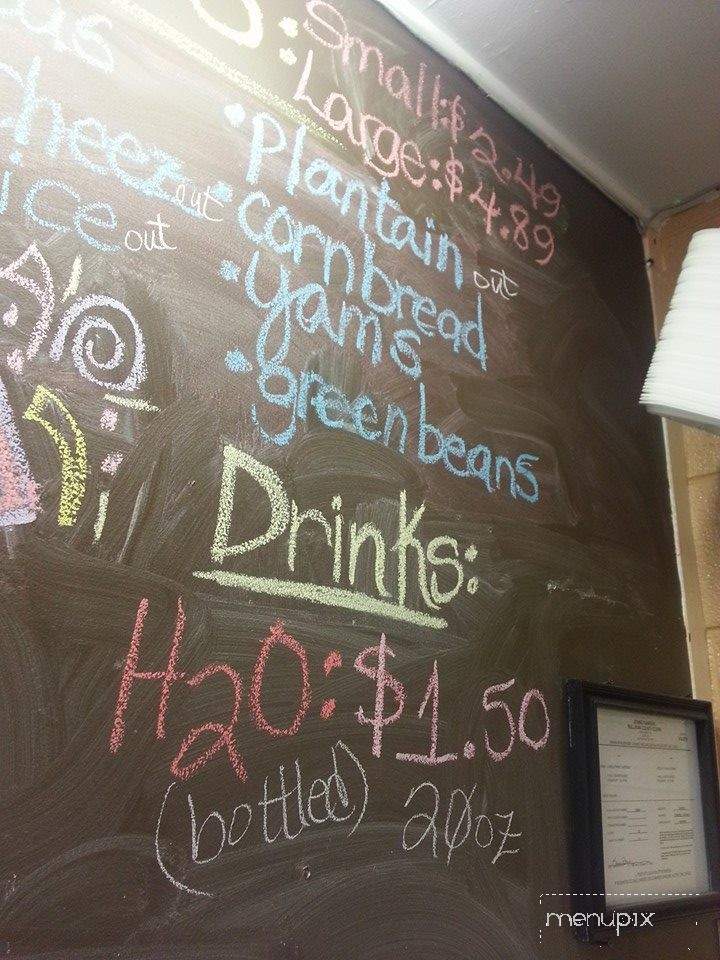 Small: $2.49
Large: $4.89
• plantain
• cornbread out
• yams
• green beans
cheez out
ice out
Drinks:
H2O: $1.50
(bottled) 20oz
menupix